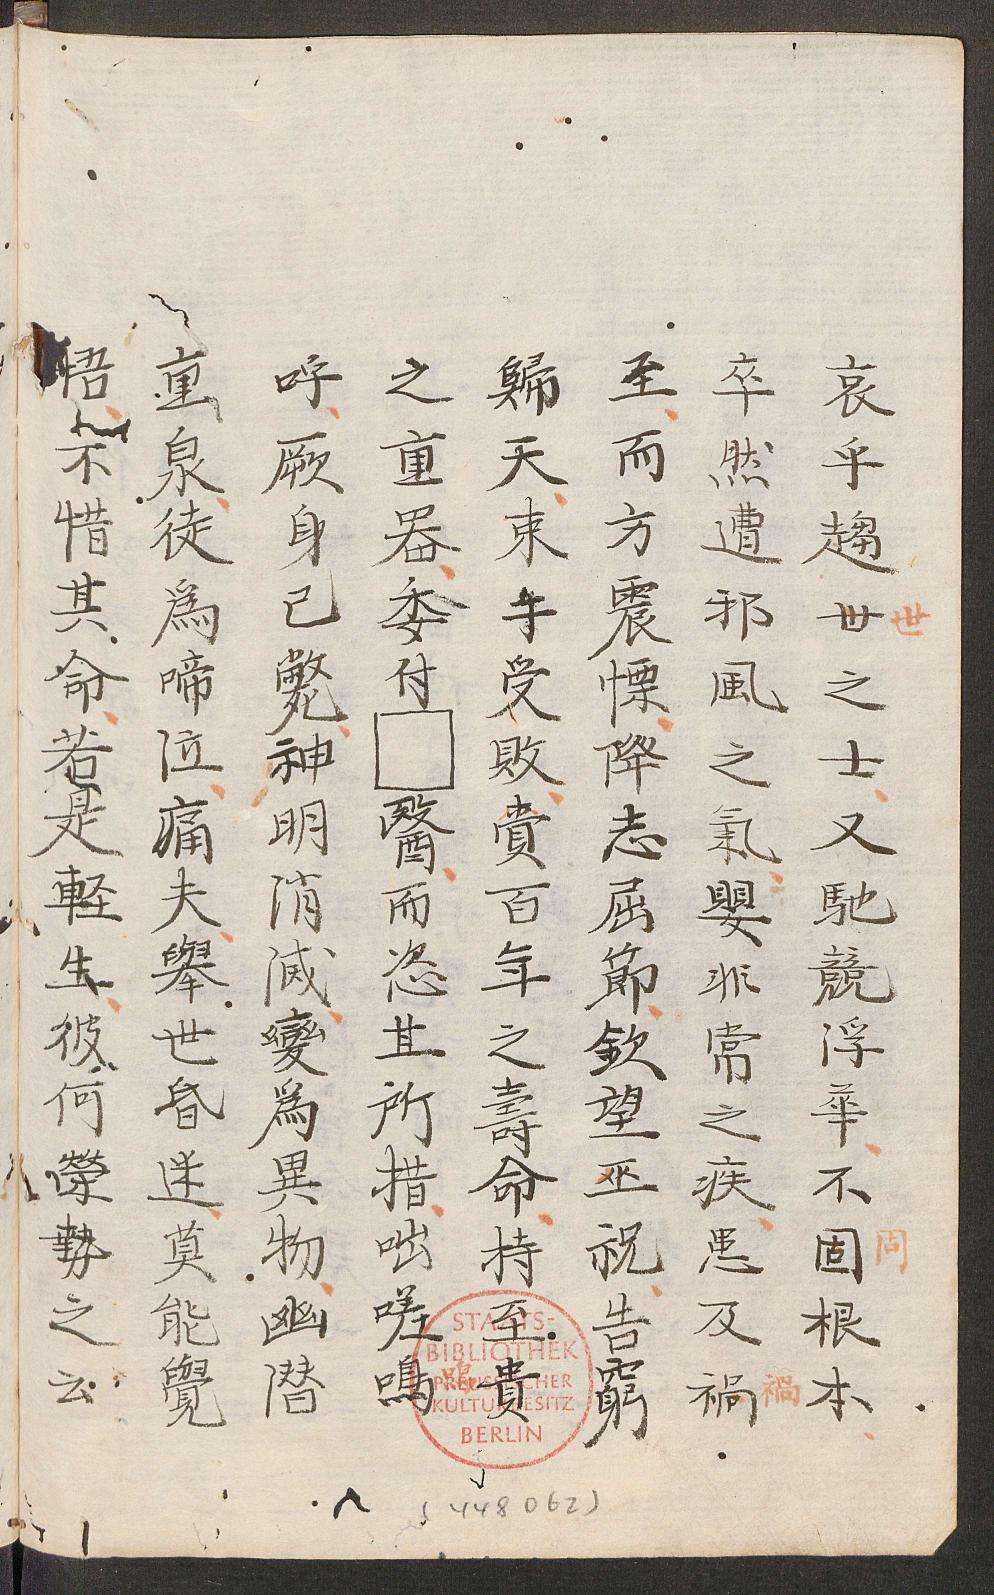 哀乎趨世之士又馳競浮華不固根本
世
固
卒然遭邪風之氣嬰非常之疾患及禍
禍
至而方震慄降志屈節欽望巫祝告窮
歸天束手受敗賷百年之壽命持至貴
之重器委付□醫而恣其所措咄嗟鳴
呼厥身已斃神明消滅變爲異物幽潛
重泉徒爲啼泣痛夫舉世昏迷莫能覺
悟不惜其命若是軽生彼何榮勢之云
STAATS-
BIBLIOTHEK
PREUSSISCHER
KULTURBESITZ
BERLIN
(448062)